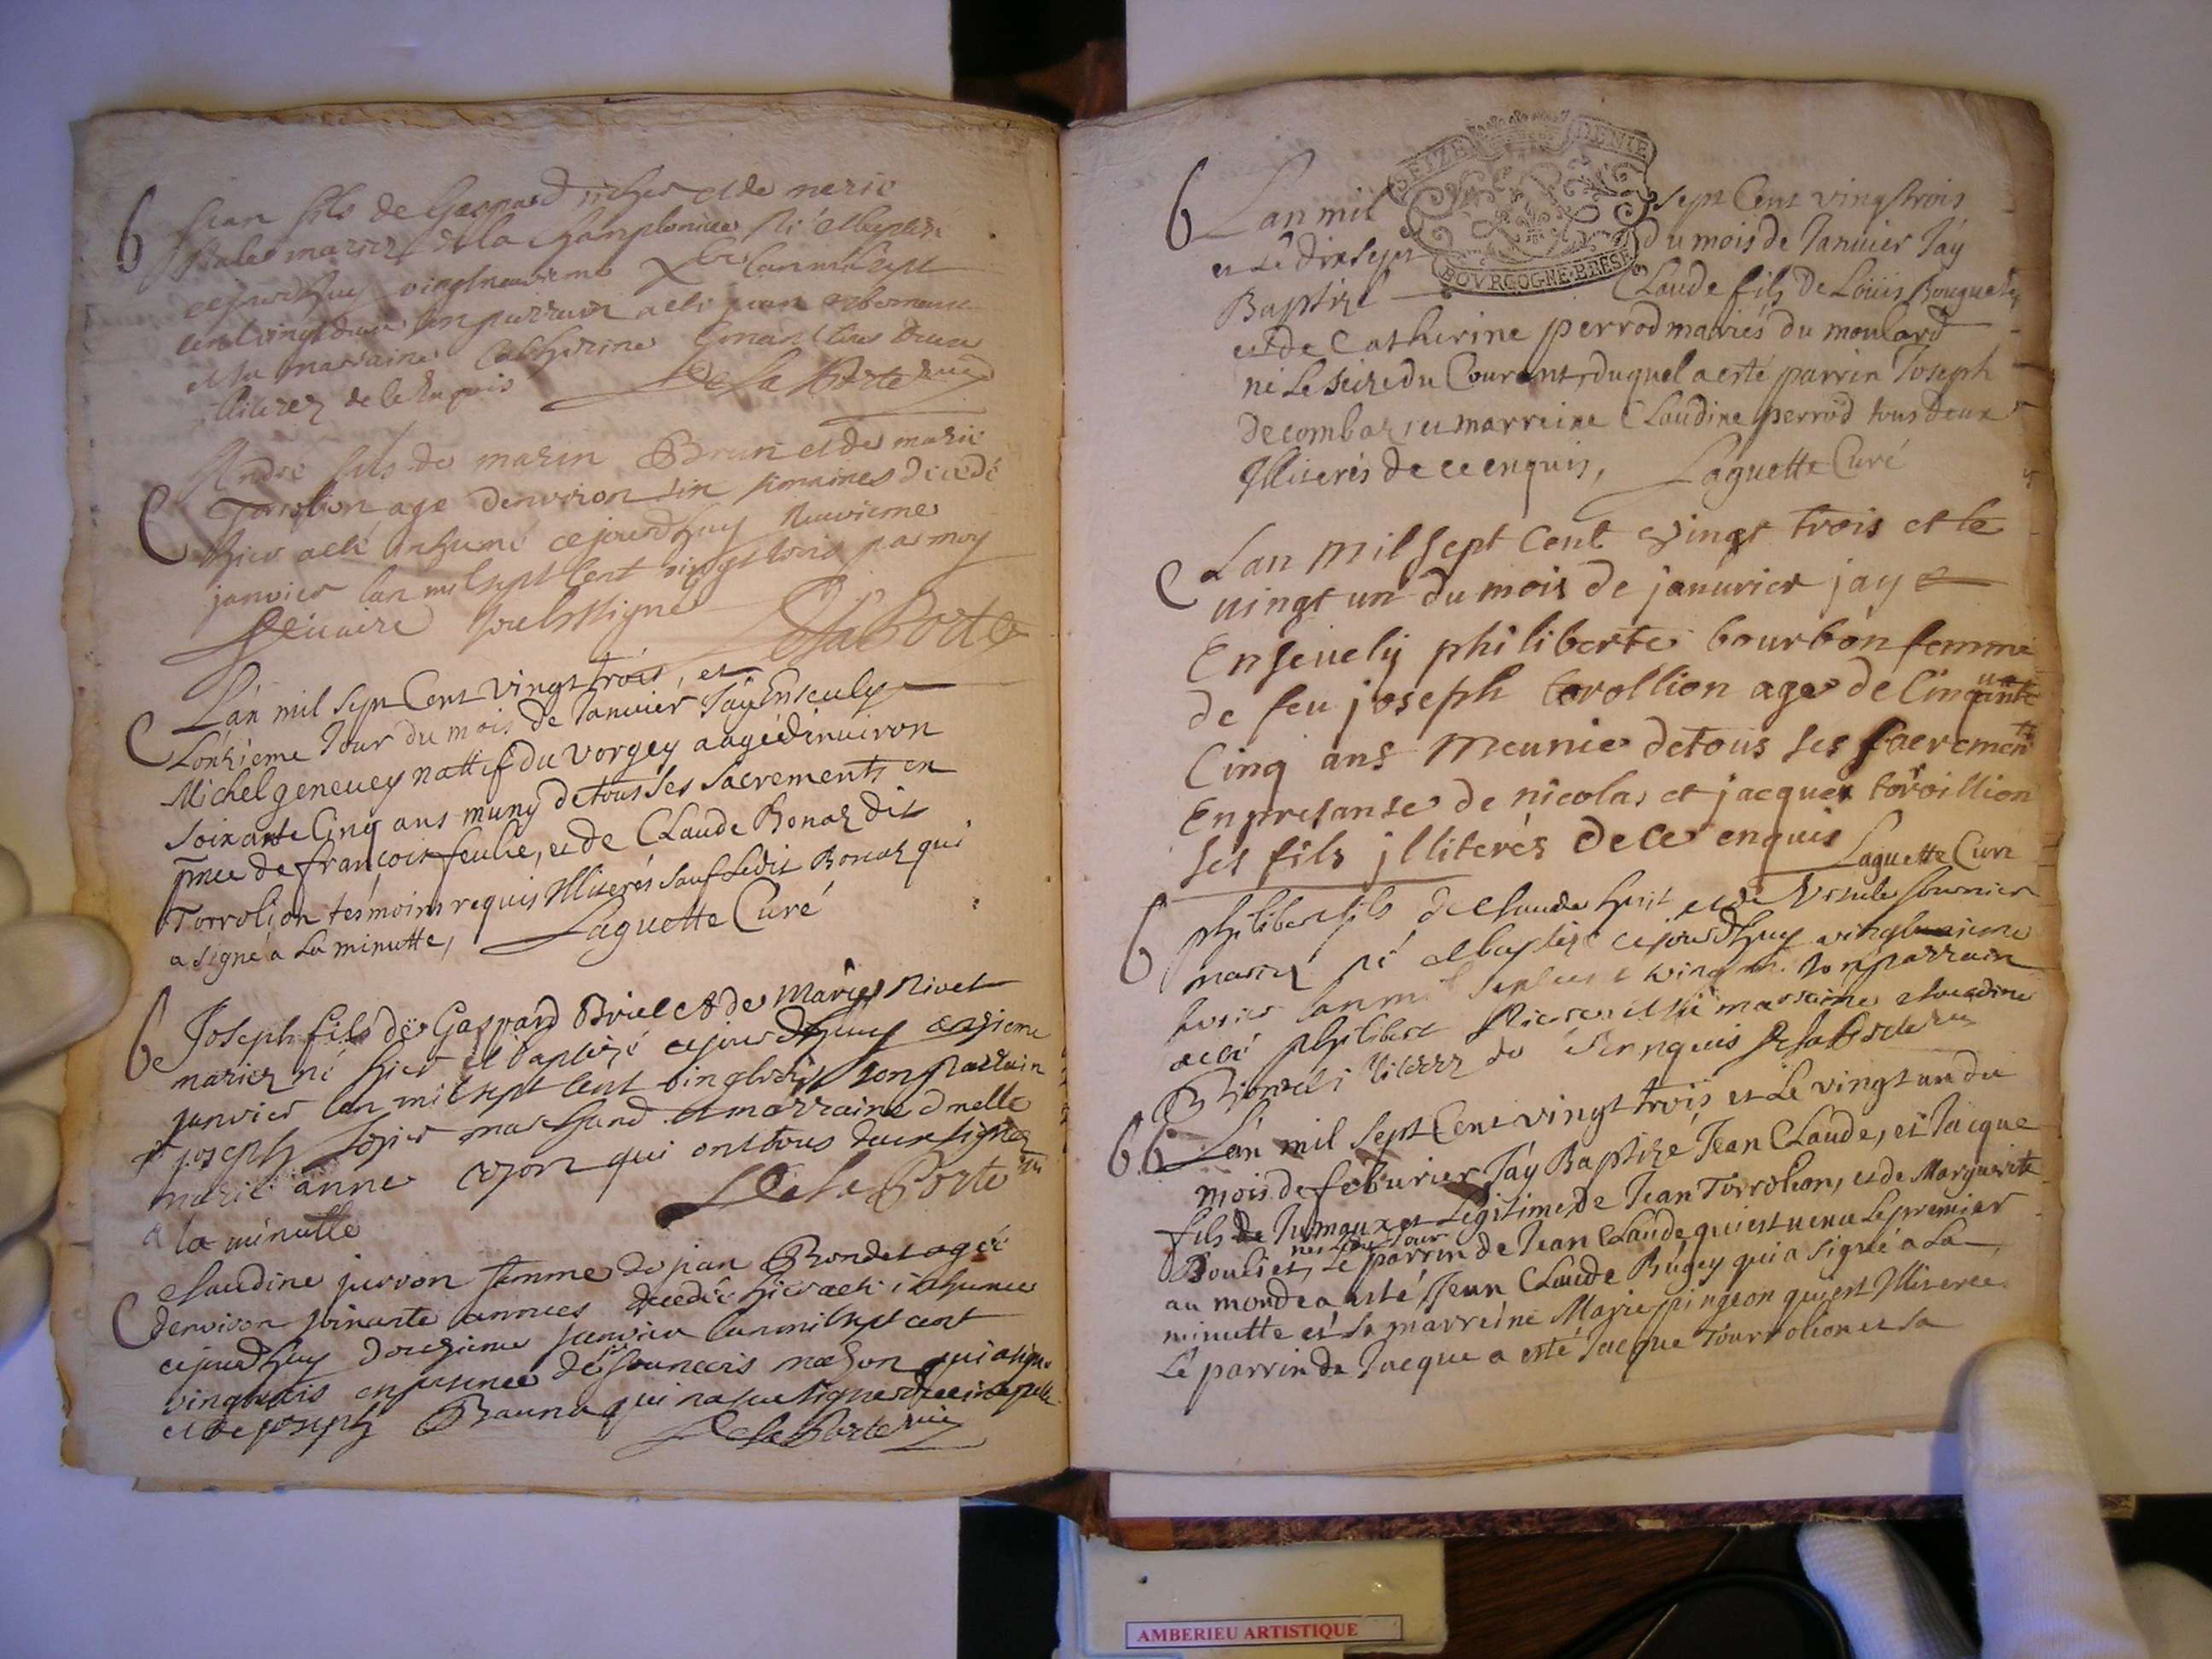 b
Jean fils de Gaspard et de marie
mariez de la né et baptizé
cejourdhuy vingtneuvieme Xbre lan mil sept
cent vingt deux son parrain a esté jean
et sa marraine Catherine tous deux
illiterez de ce enquis Delaporte vic
André fils de marin Brun et de marie
C Torrolion age denviron six semaines décédé
hier a esté inhumé cejourdhuy neuvieme
janvier lan mil sept cent vingt trois par moy
vicaire soubssigné DelaPorte
C Lán mil sept Cent Vingt trois, et
Lonzieme Jour du mois de Januier Jáy Enseuely
Michel geneuey nattif du Vorgey aagé dénuiron
soixante Cinq ans muny de tous Ses Sacrements en
pnce de françois feulie, et de Claude Bonaz dit
Torrolion tesmoins requis Illiterés sauf Ledit Bonaz qui
a signé a La minutte, Laguette Curé
b Joseph fils de Gaspard Briel et de Marie Nivet
mariez né hier et baptizé cejourdhuy onzieme
janvier lan mil sept cent vingttrois son parrain
joseph marchand et marraine dnelle
marie anne qui ont tous deux signez
a la minutte DelaPorte vic
C Claudine juvvon femme de jean Bondet agée
denviron soixante années decedée hier a esté inhumée
cejourdhuy douzieme janvier lan mil sept cent
vingttrois en presence de francois qui a signé
et de joseph qui na sceu signer de ce interpellé
DelaPorte vic
SEIZE DENIE
BOVRGOGNE. BRESE
b Lan mil sept Cent vingt trois
et Le dixsept du mois de Januier Jáy
Baptizé Claude fils de Loüis
et de Catherine perrod mariés du moulard
né Le seize du Courant, duquel a esté parrin Joseph
decombaz, et marreine Claudine perrod tous deux
Illiterés de ce enquis, Laguette Curé
C Lan mil sept Cent vingt trois et le
vingt un du mois de januvier jay
Ensevely philiberte bourbon femme
de feu joseph torollion age de Cinquante
Cinq ans Meunie de tous ses sacrement
En presanse de nicolas et jacques torroillion
ses fils jlliterés de ce enquis Laguette Curé
b philibert fils de Claude et de Ursule fournier
mariez né et baptizé cejourdhuy
lan mil sept cent vingt son parrain
a esté philibert et sa marraine Claudine
illiterez de ce enquis Delaporte vic
b.b Lán mil Sept Cent vingt troiś et Le vingt un du
mois de feburier Jáy Baptizé Jean Claude, et Jacque
fils de Jumaux et Legitime de Jean Torrolion, et de Marguerite
nés Led. Jour
Boulier, Le parrin de Jean Claude qui est uenu Le premier
au monde a esté Jean Claude Bugey qui a signé a La
minutte et Sa marreine Marie pingeon qui est Illiteree
Le parrin de Jacque a esté Jacque Tourrolion et sa
AMBERIEU ARTISTIQUE